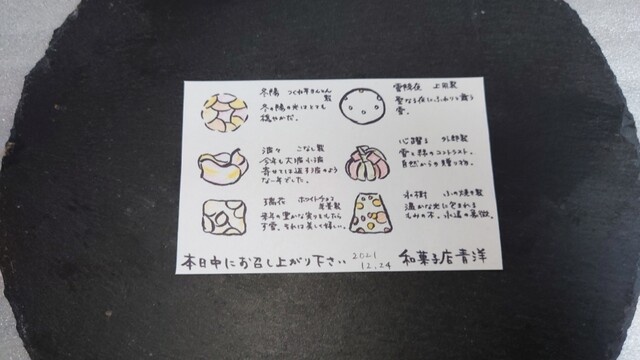 冬陽 つくね芋きんとん
製
冬の陽の光はとても
穏やかだ。
雪降夜 上用製
聖なる夜にふわりと舞う
雪。
波々 こなし製
今年も大波小波
寄せては返す波のよう
な一年でした。
心躍る 外郎製
雪と緑のコントラスト。
自然からの贈り物。
ホワイトチョコ
来年の豊かな実りをもたら
す雪。それは美しく優しい。
氷樹 ふの焼き製
温かな光に包まれる
もみの木。永遠の象徴。
本日中にお召し上がり下さい
2021
12.24
和菓子店青洋